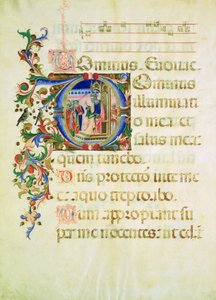 Dominus. Euouae.
Dominus
illuminati
o mea: et
salus mea
quem timebo.
Dñs protector vite me
e: a quo trepidabo.
Dum appropiant su
per me nocentes: ut